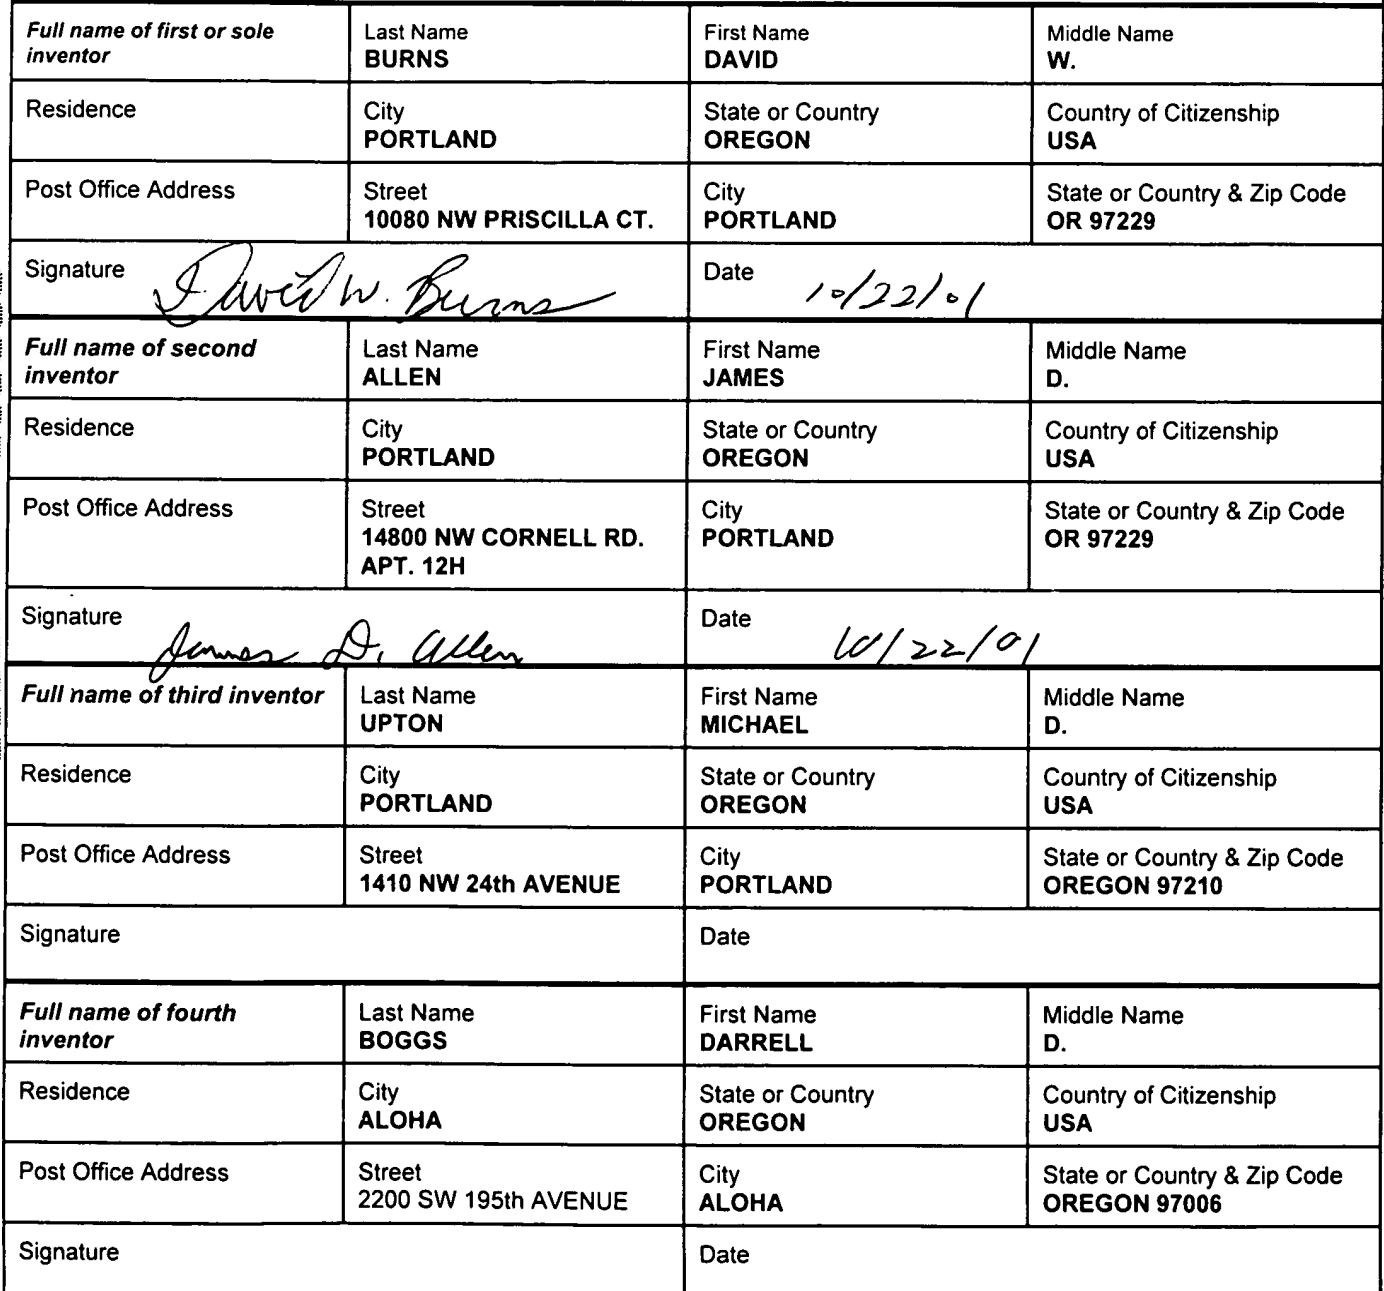 Full name of first or sole inventor
Last Name
BURNS
First Name
DAVID
Middle Name
W.
Residence
City
PORTLAND
State or Country
OREGON
Country of Citizenship
USA
Post Office Address
Street
10080 NW PRISCILLA CT.
City
PORTLAND
State or Country & Zip Code
OR 97229
Signature
David W. Burns
Date
10/22/01
Full name of second inventor
Last Name
ALLEN
First Name
JAMES
Middle Name
D.
Residence
City
PORTLAND
State or Country
OREGON
Country of Citizenship
USA
Post Office Address
Street
14800 NW CORNELL RD.
APT. 12H
City
PORTLAND
State or Country & Zip Code
OR 97229
Signature
James D. Allen
Date
10/22/01
Full name of third inventor
Last Name
UPTON
First Name
MICHAEL
Middle Name
D.
Residence
City
PORTLAND
State or Country
OREGON
Country of Citizenship
USA
Post Office Address
Street
1410 NW 24th AVENUE
City
PORTLAND
State or Country & Zip Code
OREGON 97210
Signature
Date
Full name of fourth inventor
Last Name
BOGGS
First Name
DARRELL
Middle Name
D.
Residence
City
ALOHA
State or Country
OREGON
Country of Citizenship
USA
Post Office Address
Street
2200 SW 195th AVENUE
City
ALOHA
State or Country & Zip Code
OREGON 97006
Signature
Date